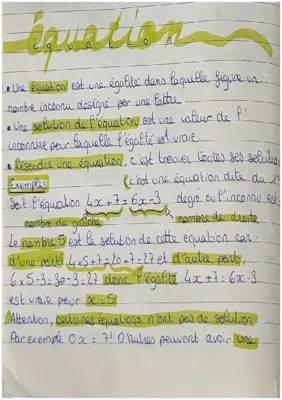 équation
• Une équation est une égalité dans laquelle figure un
nombre inconnu désigné par une lettre
• Une solution de l'équation est une valeur de l'
inconnue pour laquelle l'égalité est vraie
• Resendre une équation, c'est trouver toutes ses solutions
Exemples
(c'est une équation dite du 1er
Soit l'équation 4x+7=6x-3, degré où l'inconnu est
nombre de gauche nombre de droite
Le nombre 5 est la solution de cette équation car
d'une part 4x5+7=20+7=27 et d'autre part,
6x5-3=30-3=27 donc l'égalité 4x+7=6x-3
est vraie pour x=5
Attention, certaines équations n'ont pas de solution
Par exemple 0x=7! D'autres peuvent avoir une